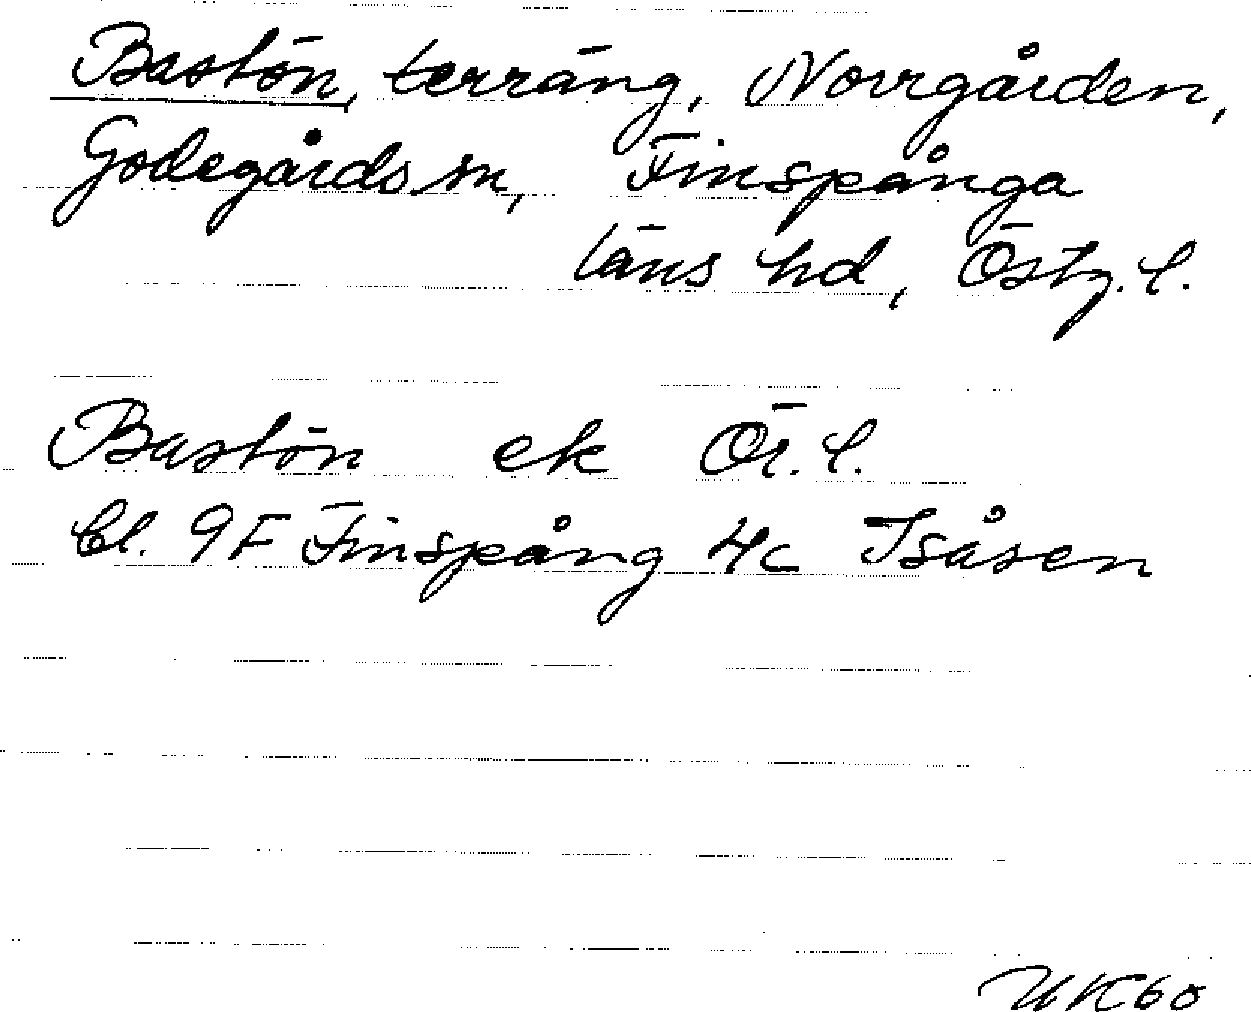 Bastön, terräng, Norrgården,
Godegårds sn, Finspånga
läns hd, Östg. l.
Bastön ek Ör. l.
Bl. 9F Finspång 4c Isåsen
UK60